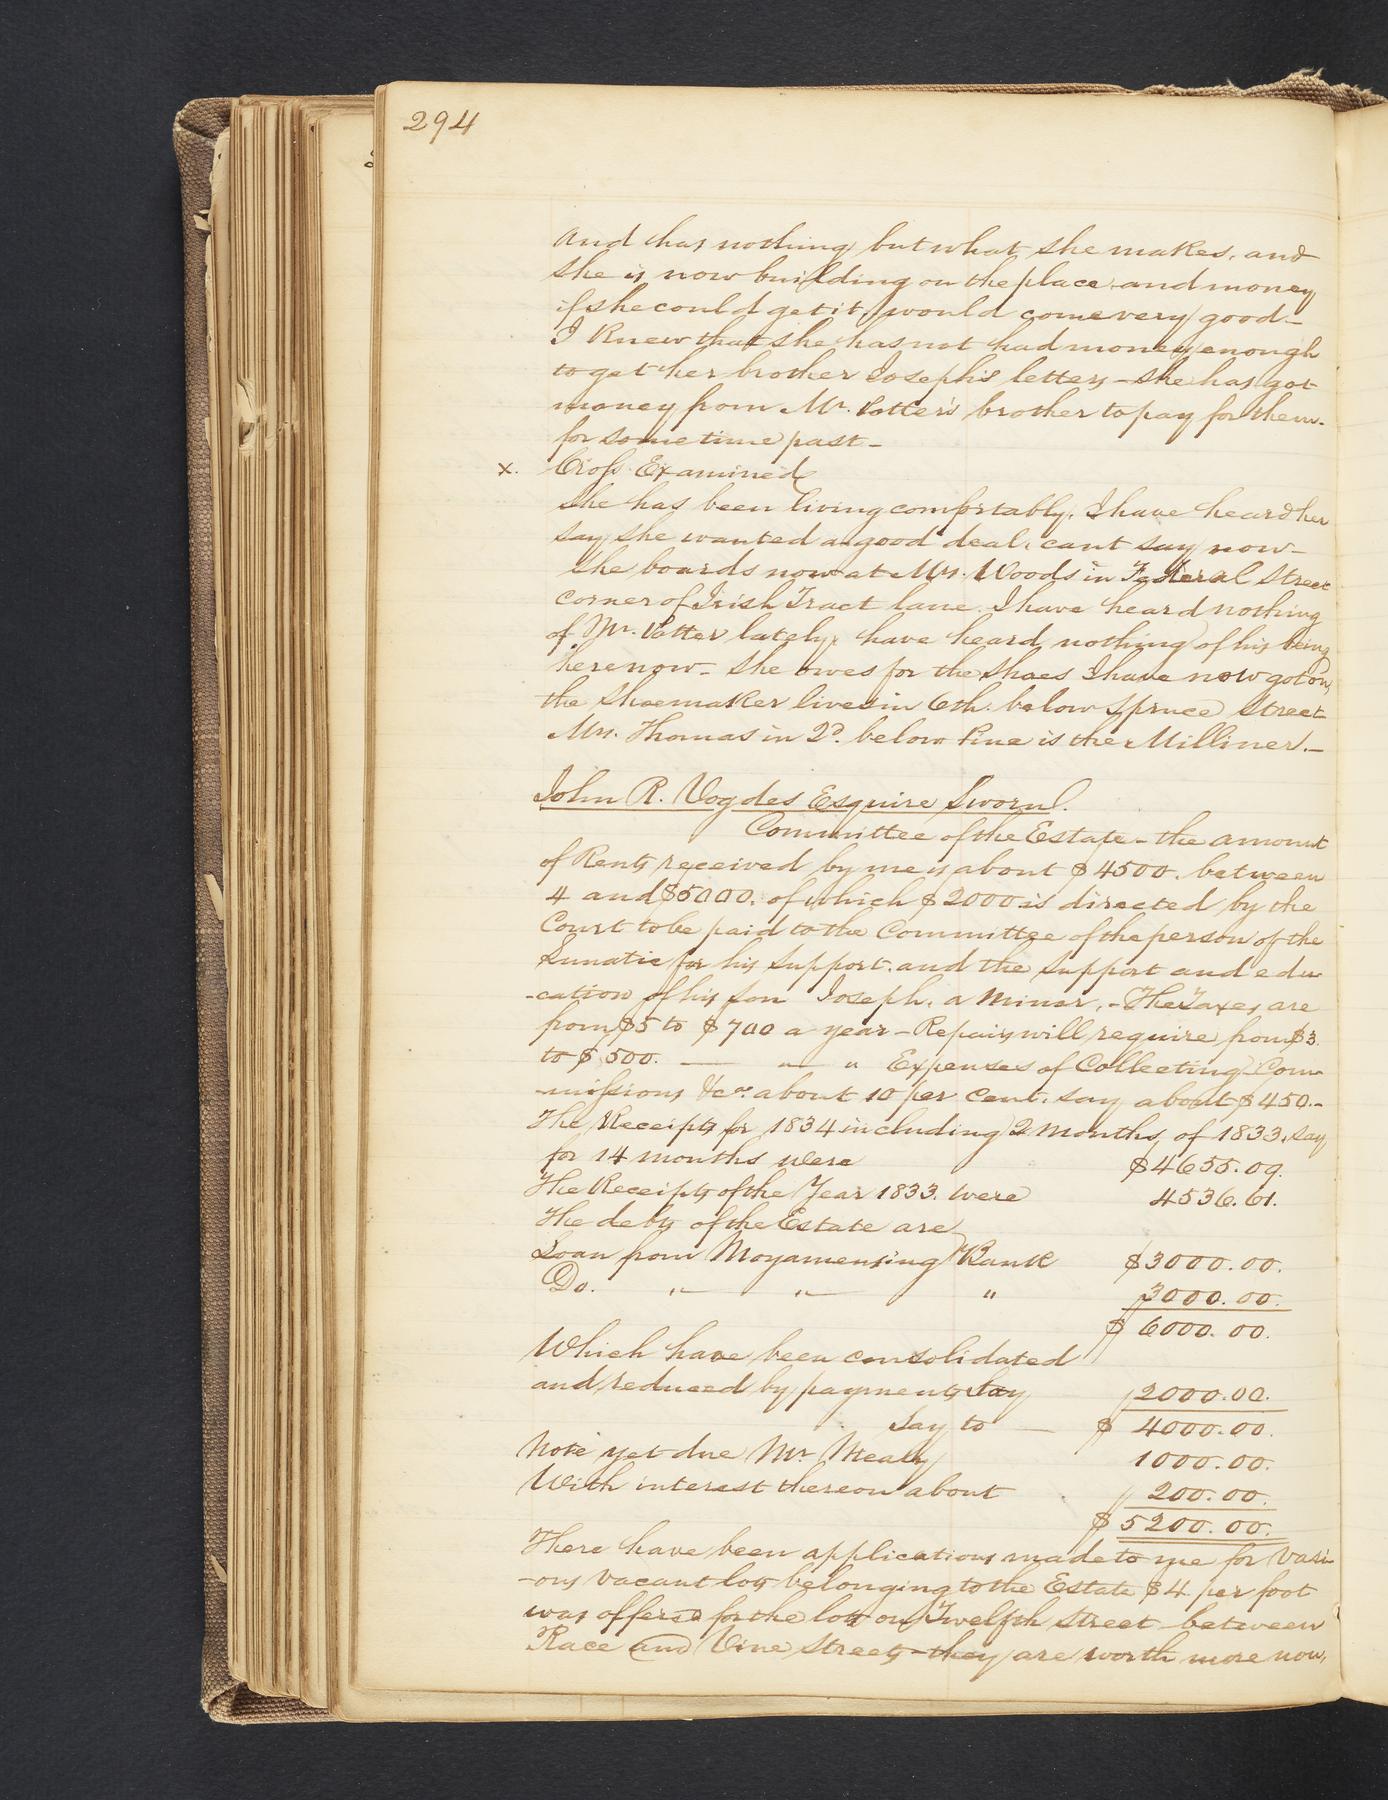 294
And has nothing but what she makes, and
she is now building on the place and money
if she could get it, would come very good—
I knew that she has not had money enough
to get her brother Joseph's letters — she has got
money from Mr. Potter's brother to pay for them.
for some time past—
x. Cross Examined
She has been living comfortably, I have heard her
say she wanted a good deal, cant say now—
She boards now at Mrs. Woods in Federal Street
corner of Irish Tract lane. I have heard nothing
of Mr. Potter lately, have heard nothing of his being
here now— She owes for the shoes I have now got on,
the Shoemaker lives in 6th. below Spruce Street
Mrs. Thomas in 2d. below Pine is the Milliner.—
John R. Vogdes Esquire Sworn.
Committee of the Estate — the amount
of Rents received by me is about $4500. between
4 and $5000. of which $2000 is directed by the
Court to be paid to the Committee of the person of the
Lunatic for his support, and the support and edu
-cation of his son Joseph, a minor.— The Taxes are
from $5 to $700 a year — Repairs will require from $3
to $500. — " — " Expenses of Collecting Com
-missions &ca. about 10 per cent. say about $450.—
The Receipts for 1834 including 2 months of 1833, say
for 14 months were $4655.09.
The Receipts of the Year 1833. were 4536.61.
The debts of the Estate are
Loan from Moyamensing Bank $3000.00.
Do. "— "— " 3000.00.
$ 6000.00.
Which have been consolidated
and reduced by payments say 2000.00.
Say to — $ 4000.00.
Note yet due Mr. Mealy 1000.00.
With interest thereon about 200.00.
$ 5200.00.
There have been applications made to me for vari
-ous vacant lots belonging to the Estate $4 per foot
was offered for the lots on Twelfth Street between
Race and Vine Streets — they are worth more now,